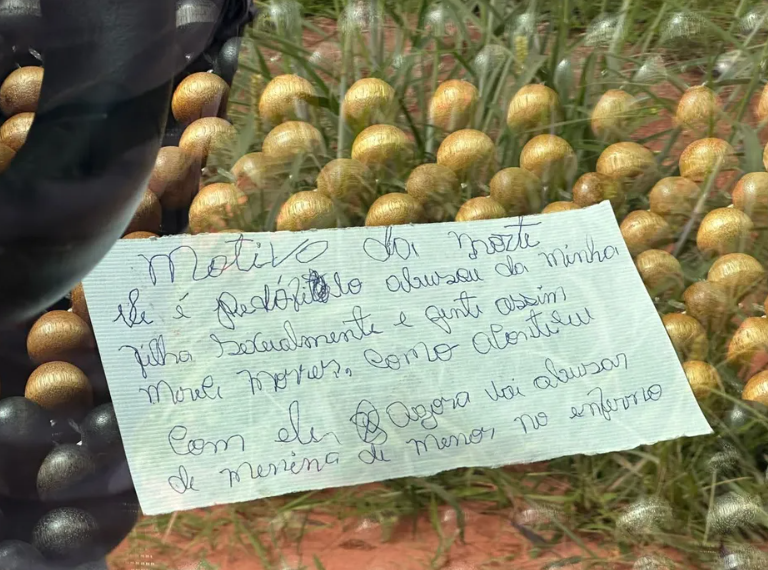 Motivo da morte
ele é pedófilo abusou da minha
filha sexualmente e gente assim
morre
como aconteceu
com ele Agora vai abusar
de menina de menor no inferno